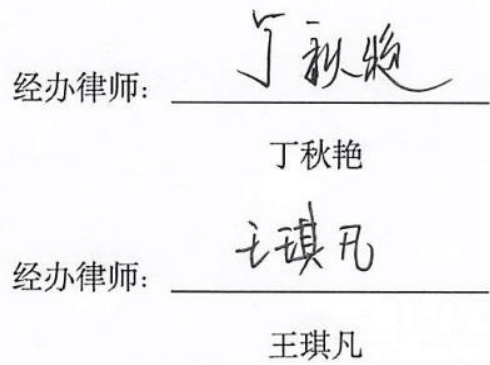 经办律师：丁秋艳
丁秋艳
经办律师：王琪凡
王琪凡